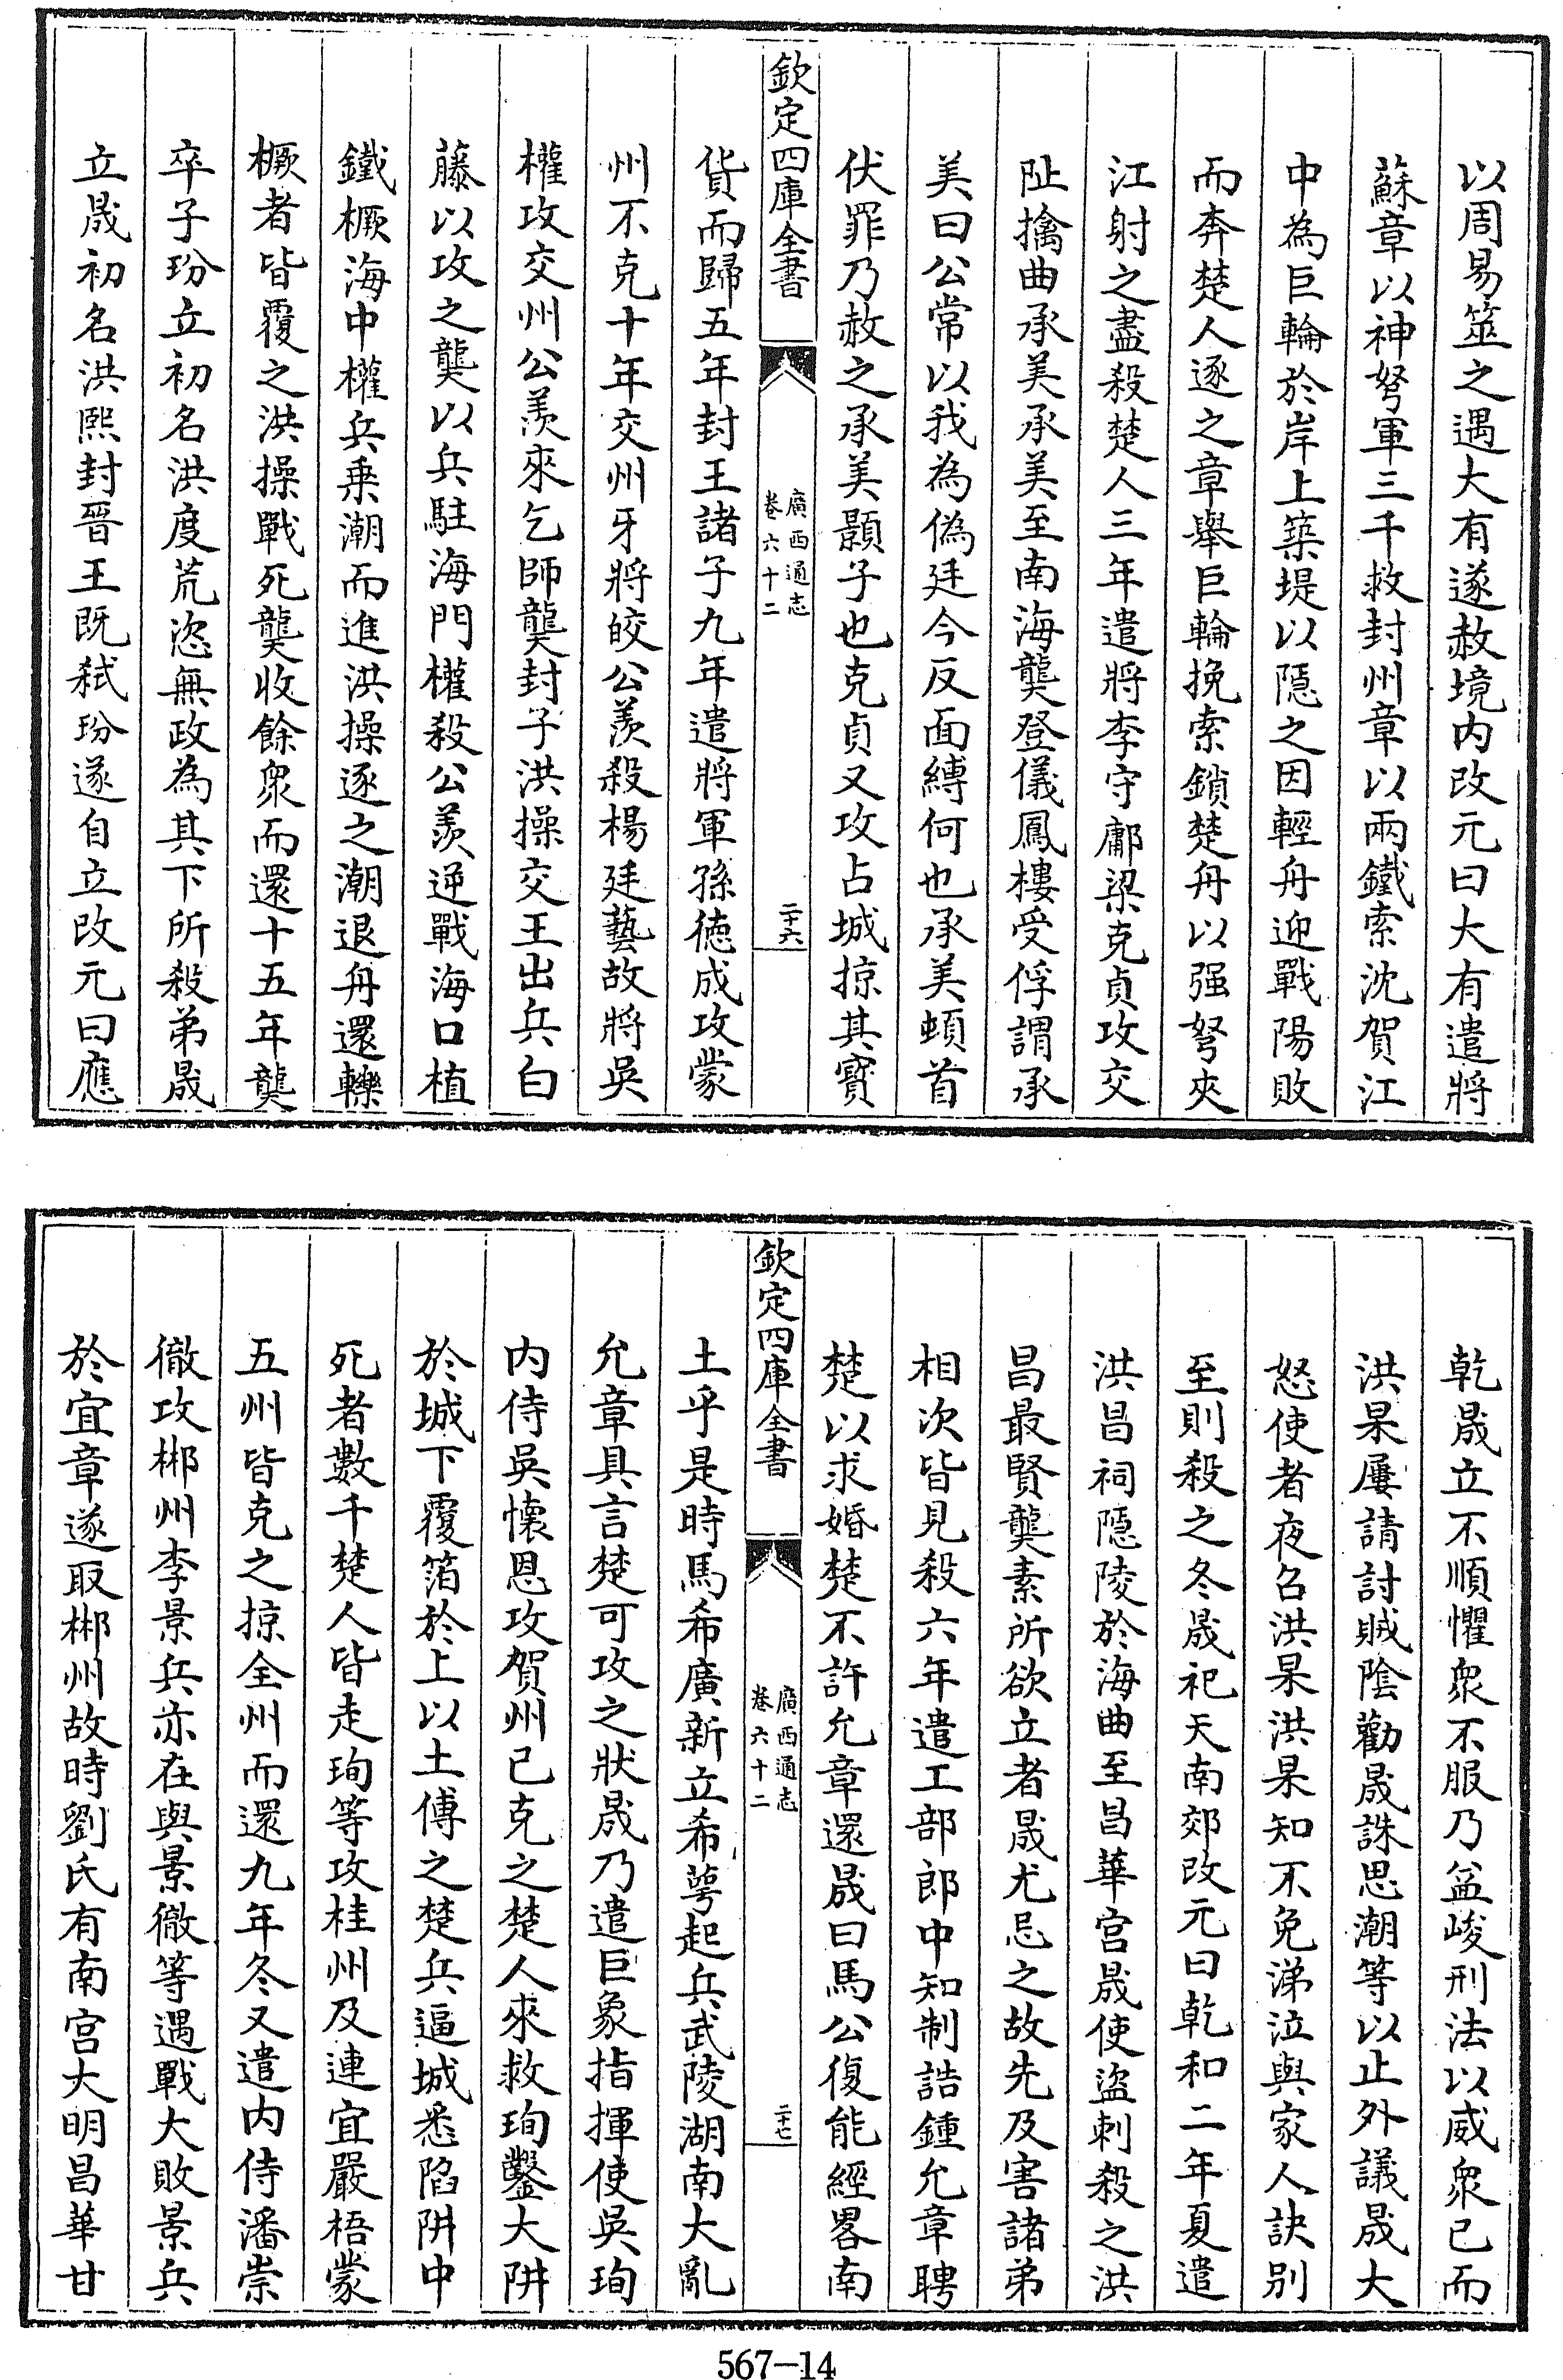 以周易筮之遇大有遂赦境内改元曰大有遣將
蘇章以神弩軍三千救封州章以兩鐵索沈賀江
中為巨輪於岸上築堤以隱之因輕舟迎戰陽敗
而奔楚人逐之章舉巨輪挽索鎖楚舟以强弩夾
江射之盡殺楚人三年遣將李守鄘梁克貞攻交
阯擒曲承美承美至南海龑登儀鳳樓受俘謂承
美曰公常以我為偽廷今反面縛何也承美頓首
伏罪乃赦之承美顥子也克貞又攻占城掠其寶
欽定四庫全書
廣西通志
卷六十二
二十六
貨而歸五年封王諸子九年遣將軍孫德成攻蒙
州不克十年交州牙將皎公羨殺楊廷藝故將吳
權攻交州公羨來乞師龑封子洪操交王出兵白
藤以攻之龑以兵駐海門權殺公羨逆戰海口植
鐵橛海中權兵乗潮而進洪操逐之潮退舟還轢
橛者皆覆之洪操戰死龑收餘衆而還十五年龑
卒子玢立初名洪度荒恣無政為其下所殺弟晟
立晟初名洪熙封晉王既弑玢遂自立改元曰應
乾晟立不順懼衆不服乃益峻刑法以威衆已而
洪杲屢請討賊隂勸晟誅思潮等以止外議晟大
怒使者夜召洪杲洪杲知不免涕泣與家人訣別
至則殺之冬晟祀天南郊改元曰乾和二年夏遣
洪昌祠隱陵於海曲至昌華宫晟使盜刺殺之洪
昌最賢龑素所欲立者晟尤忌之故先及害諸弟
相次皆見殺六年遣工部郎中知制誥鍾允章聘
楚以求婚楚不許允章還晟曰馬公復能經畧南
欽定四庫全書
廣西通志
卷六十二
二十七
土乎是時馬希廣新立希萼起兵武陵湖南大亂
允章具言楚可攻之狀晟乃遣巨象指揮使吳珣
内侍吳懷恩攻賀州已克之楚人來救珣鑿大阱
於城下覆箔於上以土傅之楚兵逼城悉陷阱中
死者數千楚人皆走珣等攻桂州及連宜嚴梧蒙
五州皆克之掠全州而還九年冬又遣内侍潘崇
徹攻郴州李景兵亦在與景徹等遇戰大敗景兵
於宜章遂取郴州故時劉氏有南宫大明昌華甘
567-14